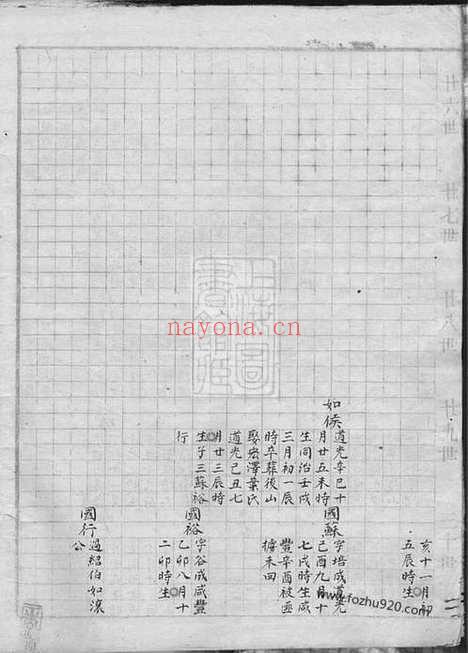 亥十一月初
五辰時生
如侯
道光辛巳十
月廿五未時
生同治壬戌
三月初一辰
時卒葬後山
娶宏澤葉氏
道光己丑七
月廿三辰時
生子三蘇裕
行
國蘇
字培成道光
己酉九月十
七戌時生咸
豐辛酉被匪
擄未回
國裕
字谷成咸豐
乙卯八月十
二卯時生
國行
過紹伯如滾
公
廿六世
廿七世
廿八世
廿九世
nayona.cn
www.fozhu920.com